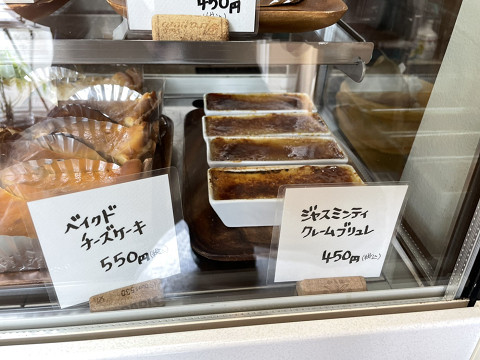 450円
ベイクド
チーズケーキ
550円(税込)
ジャスミンティ
クレームブリュレ
450円(税込)